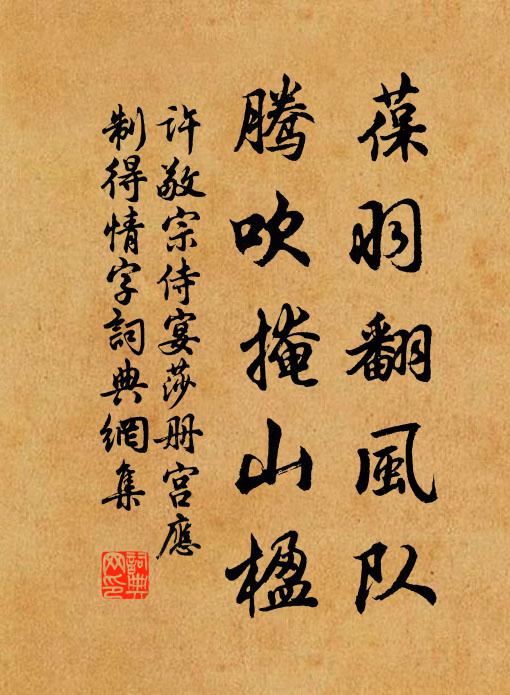 葆羽翻風队
腾吹掩山楹
许敬宗侍宴莎册宫應
制得情字詞典網集
詞典网印